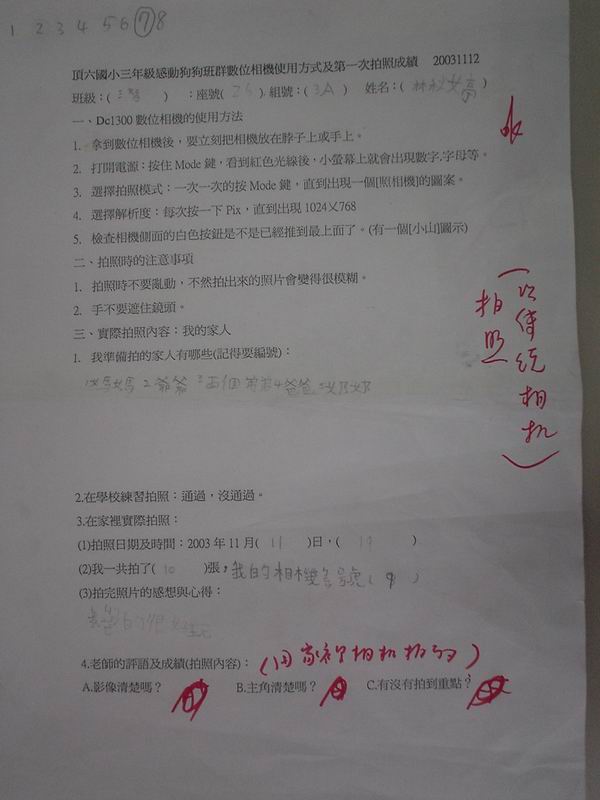 1 2 3 4 5 6 7 8
頂六國小三年級感動狗狗班群數位相機使用方式及第一次拍照成績 20031112
班級：( 三智 ) ：座號( ) 組號：( 3A ) 姓名：( 林秋 )
一、Dc1300 數位相機的使用方法
1. 拿到數位相機後，要立刻把相機放在脖子上或手上。
2. 打開電源：按住 Mode 鍵，看到紅色光線後，小螢幕上就會出現數字.字母等。
3. 選擇拍照模式：一次一次的按 Mode 鍵，直到出現一個[照相機]的圖案。
4. 選擇解析度：每次按一下 Pix，直到出現 1024乂768
5. 檢查相機側面的白色按鈕是不是已經推到最上面了。(有一個[小山]圖示)
二、拍照時的注意事項
1. 拍照時不要亂動，不然拍出來的照片會變得很模糊。
2. 手不要遮住鏡頭。
三、實際拍照內容：我的家人
1. 我準備拍的家人有哪些(記得要編號)：
媽媽 2 爺爺 3 兩個弟弟 4 爸爸 奶奶
(以傳統相机
拍照)
2.在學校練習拍照：通過，沒通過。
3.在家裡實際拍照：
(1)拍照日期及時間：2003 年 11 月( 11 )日，( 19 )
(2)我一共拍了( 10 )張，我的相機名號( 9 )
(3)拍完照片的感想與心得：
4.老師的評語及成績(拍照內容)：(用家裡相机拍的)
A.影像清楚嗎？ B.主角清楚嗎？ C.有沒有拍到重點？